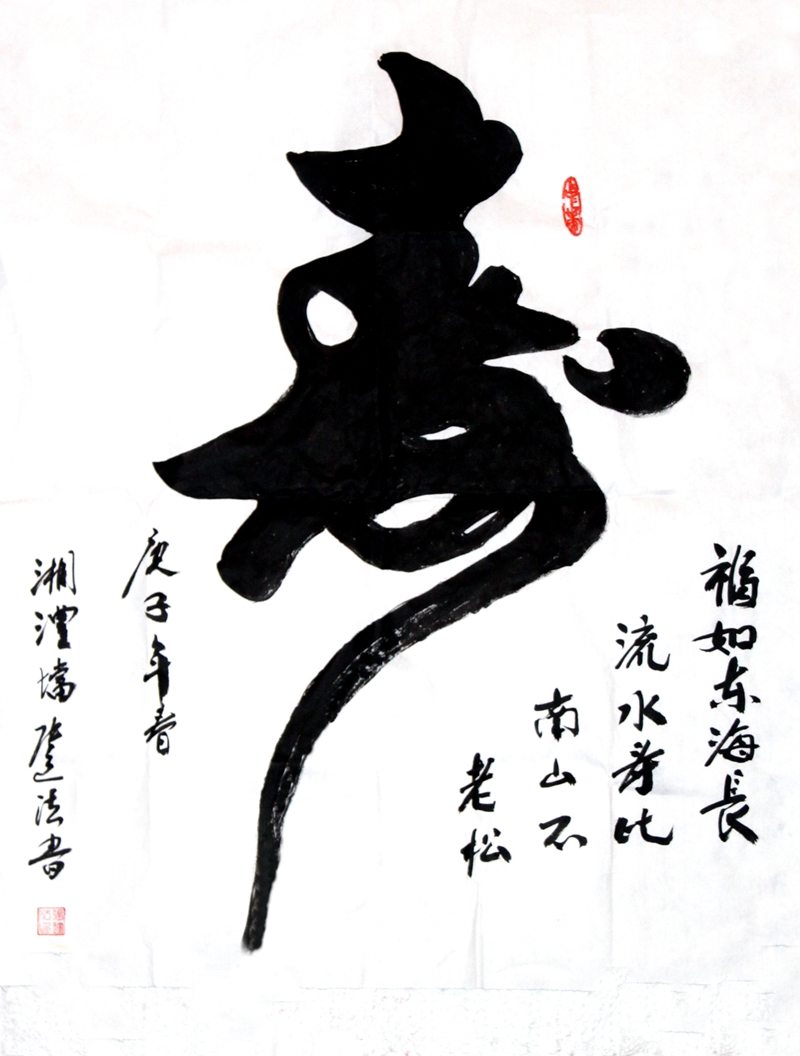 寿
福如东海長
流水寿比
南山不
老松
庚子年春
湘澧壋法書